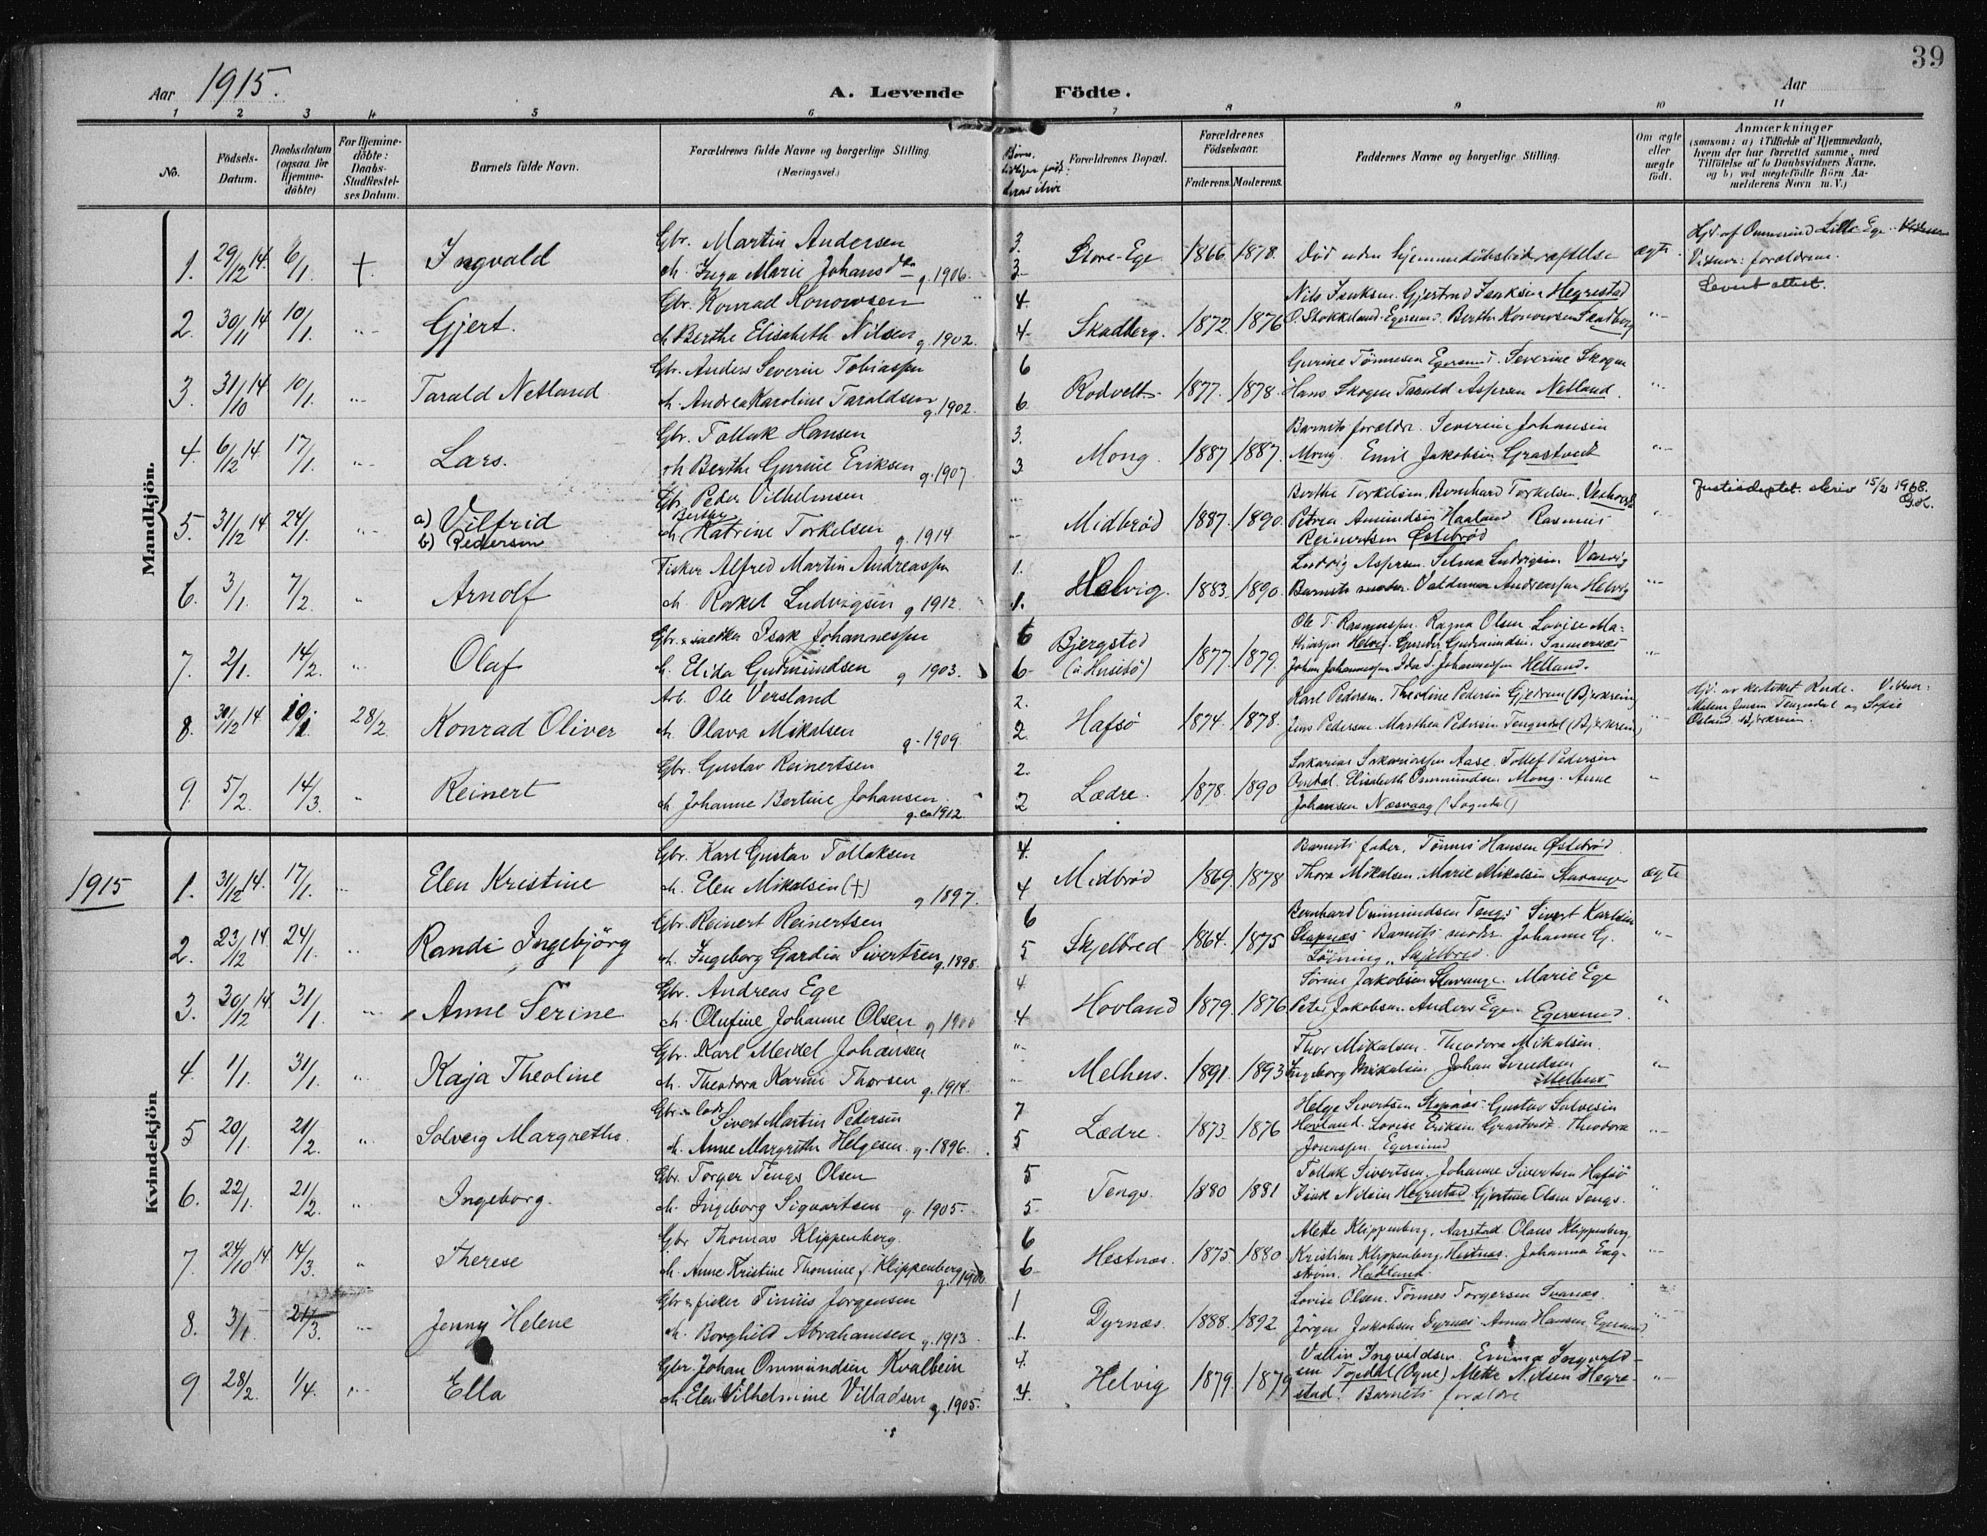 39
Aar 1915. A. Levende Födte. Aar
1 2 3 4 5 6 7 8 9 10 11
No. Födsels-Datum. Daabsdatum (ogsaa for Hjemmedöbte) For Hjemmedöbte: Daabs-Stadfestelses Datum. Barnets fulde Navn. Forældrenes fulde Navne og borgerlige Stilling (Næringsvei.) Forældrenes Bopæl. Forældrenes Födselsaar. Faderens. Moderens. Faddernes Navne og borgerlige Stilling. Om ægte eller uægte födt. Anmærkninger (saasom: a) i Tilfælde af Hjemmedaab, hvem der har forrettet samme, med Tilföielse af to Daabsvidners Navne, og b) ved uegtefödte Börn Anmelderens Navn m. V.)
Mandkjön.
1. 29/12 14. 6/1 +. Ingvald Gbr. Martin Andersen 3. Store-Ege 1866. 1878. Död uden hjemmedaabsbekræftelse ægte
Inga Marie Johansdtr g. 1906. 3. Vidner: forældrene. Levert attest.
2. 30/11 14 10/1. Gjert. Gbr. Konrad Konowsen 4. Skadberg. 1872. 1876 Nils Isaksen. Gjertrud Isaksen Hegrestad
Berthe Elisabeth Nilsen g. 1902. 4. O. Stokkeland. Egersund. Berthe Konowsen Skadberg
3. 31/10 14 10/1. Tarald Netland Gbr. Anders Severin Tobiassen 6 Rodvelt 1877. 1878. Gurine Tönnesen Egersund. Severine Skogen
Andrea Karoline Taraldsen g. 1902. 6. Hans Skogen Tarald Aspersen Netland.
4. 6/12 14 17/1. Lars. Gbr. Tollak Hansen 3. Mong. 1887 1887. Barnets forældre. Severin Johansen
Berthe Gurine Eriksen g. 1907. 3 Mong. Emil Jakobsen Grastveit
5. 31/12 14 24/1. a) Vilfrid b) Pedersen Gbr. Peder Vilhelmsen Midbröd 1887. 1890. Berthe Torkelsen. Bernhard Torkelsen. Justisdeptet. skriv 15/2 1968.
Berthe Katrine Torkelsen g. 1914. Petrea Amundsen Haaland Rasmus
Reinertsen Østebröd
6. 3/1. 7/2. Arnolf Fisker Alfred Martin Andreassen 1. Helvig. 1883. 1890. Ludvig Aspersen. Selma Ludvigsen. Varvig
Rakel Ludvigsen g. 1912. 1. Barnets moder. Valdemar Andreassen Helvig
7. 2/1. 14/2. Olaf Isak Johannessen 6 Bjergsted 1877. 1879. Ole T. Rasmussen. Ragna Olsen Lovise Ma-
Elida Gudmundsen g 1903. 6 Johan Johannessen Ida S. Johannessen Helland.
8. 30/12 14. 10/1 28/2. Konrad Oliver Arb. Ole Versland 2. Hafsö 1874. 1878. Karl Pedersen. Theodine Pedersen Gjedrem (Bjerkreim)
Olava Mikalsen g. 1909. 2 Jens Pedersen. Marthea Pedersen Tengesdal (Bjerkreim)
9. 5/2. 14/3. Reinert Gbr. Gustav Reinertsen 2. Lædre. 1878. 1890 Sakarias Sakariassen Aase. Tollef Pedersen
Johanne Bertine Johansen g. ca 1912. 2 Elisabeth Ommundsen Mong. Anne
Johansen Næsvaag (Sogndal)
1915
Kvindekjön
1. 31/12 14. 17/1. Elen Kristine Gbr. Karl Gustav Tollaksen 4. Midbröd 1869. 1878 Barnets fader. Tönnes Hansen Østebröd. ægte
Elen Mikalsen (+) g 1897. 4 Thora Mikalsen. Marie Mikalsen Stavanger
2. 23/12 14. 24/1. Randi Ingebjörg Gbr. Reinert Reinertsen 6 Skjelbred 1864. 1875 Bernhard Ommundsen Tengs Sivert Karlsen
Ingeborg Gardia Sivertsen g. 1898. 5 Slapnæs Barnets moder. Johanne G.
Skjelbred.
3. 30/12 14. 31/1. Anne Serine Gbr. Andreas Ege 4 Hovland 1879. 1876 Sörine Jakobsen Stavanger. Marie Ege
Olufine Johanne Olsen g 1900 4 Peter Jakobsen Anders Ege Egersund.
4. 1/1. 31/1. Kaja Theoline Gbr. Karl Meidel Johansen Melhus. 1891. 1893 Thor Mikalsen. Theodora Mikalsen.
Theodora Karine Thorsen g. 1914. Ingeborg Mikalsen Johan Svendsen
Melhus
5 20/1. 21/2. Solveig Margrethe. Gbr. Sivert Martin Petersen 7 Lædre. 1873 1876 Helge Sivertsen Slapnæs. Gustav Salvesen
Anne Margrethe Helgesen g. 1896. 5 Hovland. Lovise Eriksen Grastveit. Theodora
Jonassen Egersund
6. 22/1. 21/2. Ingeborg. Gbr. Torger Tengs Olsen 5 Tengs. 1880 1881 Tollak Sivertsen. Johanne Sivertsen Hafsö
Ingeborg Sigvartsen g. 1905. 5. Isak Nilsen Hegrestad Gjertine Olsen Tengs.
7. 24/10 14. 14/3. Therese Gbr Thomas Klippenberg. 6 Hestnæs. 1875. 1880 Mette Klippenberg. Aarstad Olaus Klippenberg
Anne Kristine Thomine f. Klippenberg g. 1900 6 Kristian Klippenberg. Hestnæs. Johanna Eng-
ström. Hadland.
8. 3/1. 21/3. Jenny Helene Gbr & fisker Tinius Jörgensen 1 Dyrnæs. 1888. 1892 Lovise Olsen. Tönnes Torgersen Svanæs.
Borghild Abrahamsen g. 1913. 1. Jörgen Jakobsen Dyrnæs Anna Hansen Egersund
9 28/2. 1/4. Ella Gbr. Johan Ommundsen Kvalbein 4. Helvig 1879. 1879 Vallin Ingvaldsen. Emma Ingvald-
Elen Vilhelmine Villadsen g. 1905. 4. sen (Ogne) Mette Nilsen Hegre-
stad. Barnets forældre